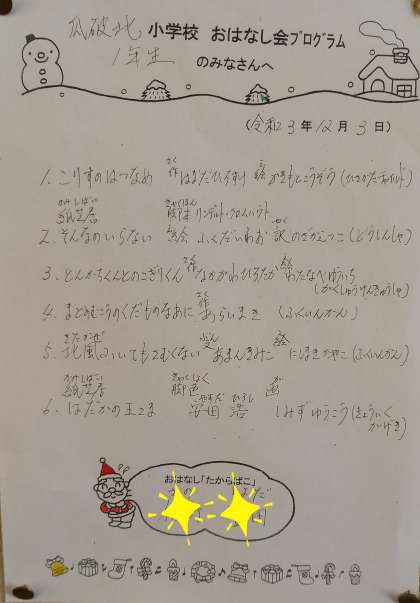 瓜破北小学校 おはなし会プログラム
1年生 のみなさんへ
(令和3年12月3日)
1. こりすのはつなめ 作 はまだひろすけ 絵 かきもとこうぞう(ひさかたチャイルド)
紙芝居 脚本
2. そんなのいらない 絵 ふくだいわお 訳 のざかえつこ(どうしんしゃ)
3. とんかちくんとのこぎりくん 作 なかがわひろたか 絵 わたなべゆういち
(がくしゅうけんきゅうしゃ)
4. まどのむこうのくだものなあに 作 あらいまき (ふくいんかん)
5. 北風ふいてもさむくない ぶん あまんきみこ 絵 にしまきかやこ(ふくいんかん)
紙芝居 脚色 画
6. はだかの王さま 安田 浩 しみずゆうこう(きょういく
がげき)
おはなし「たからばこ」